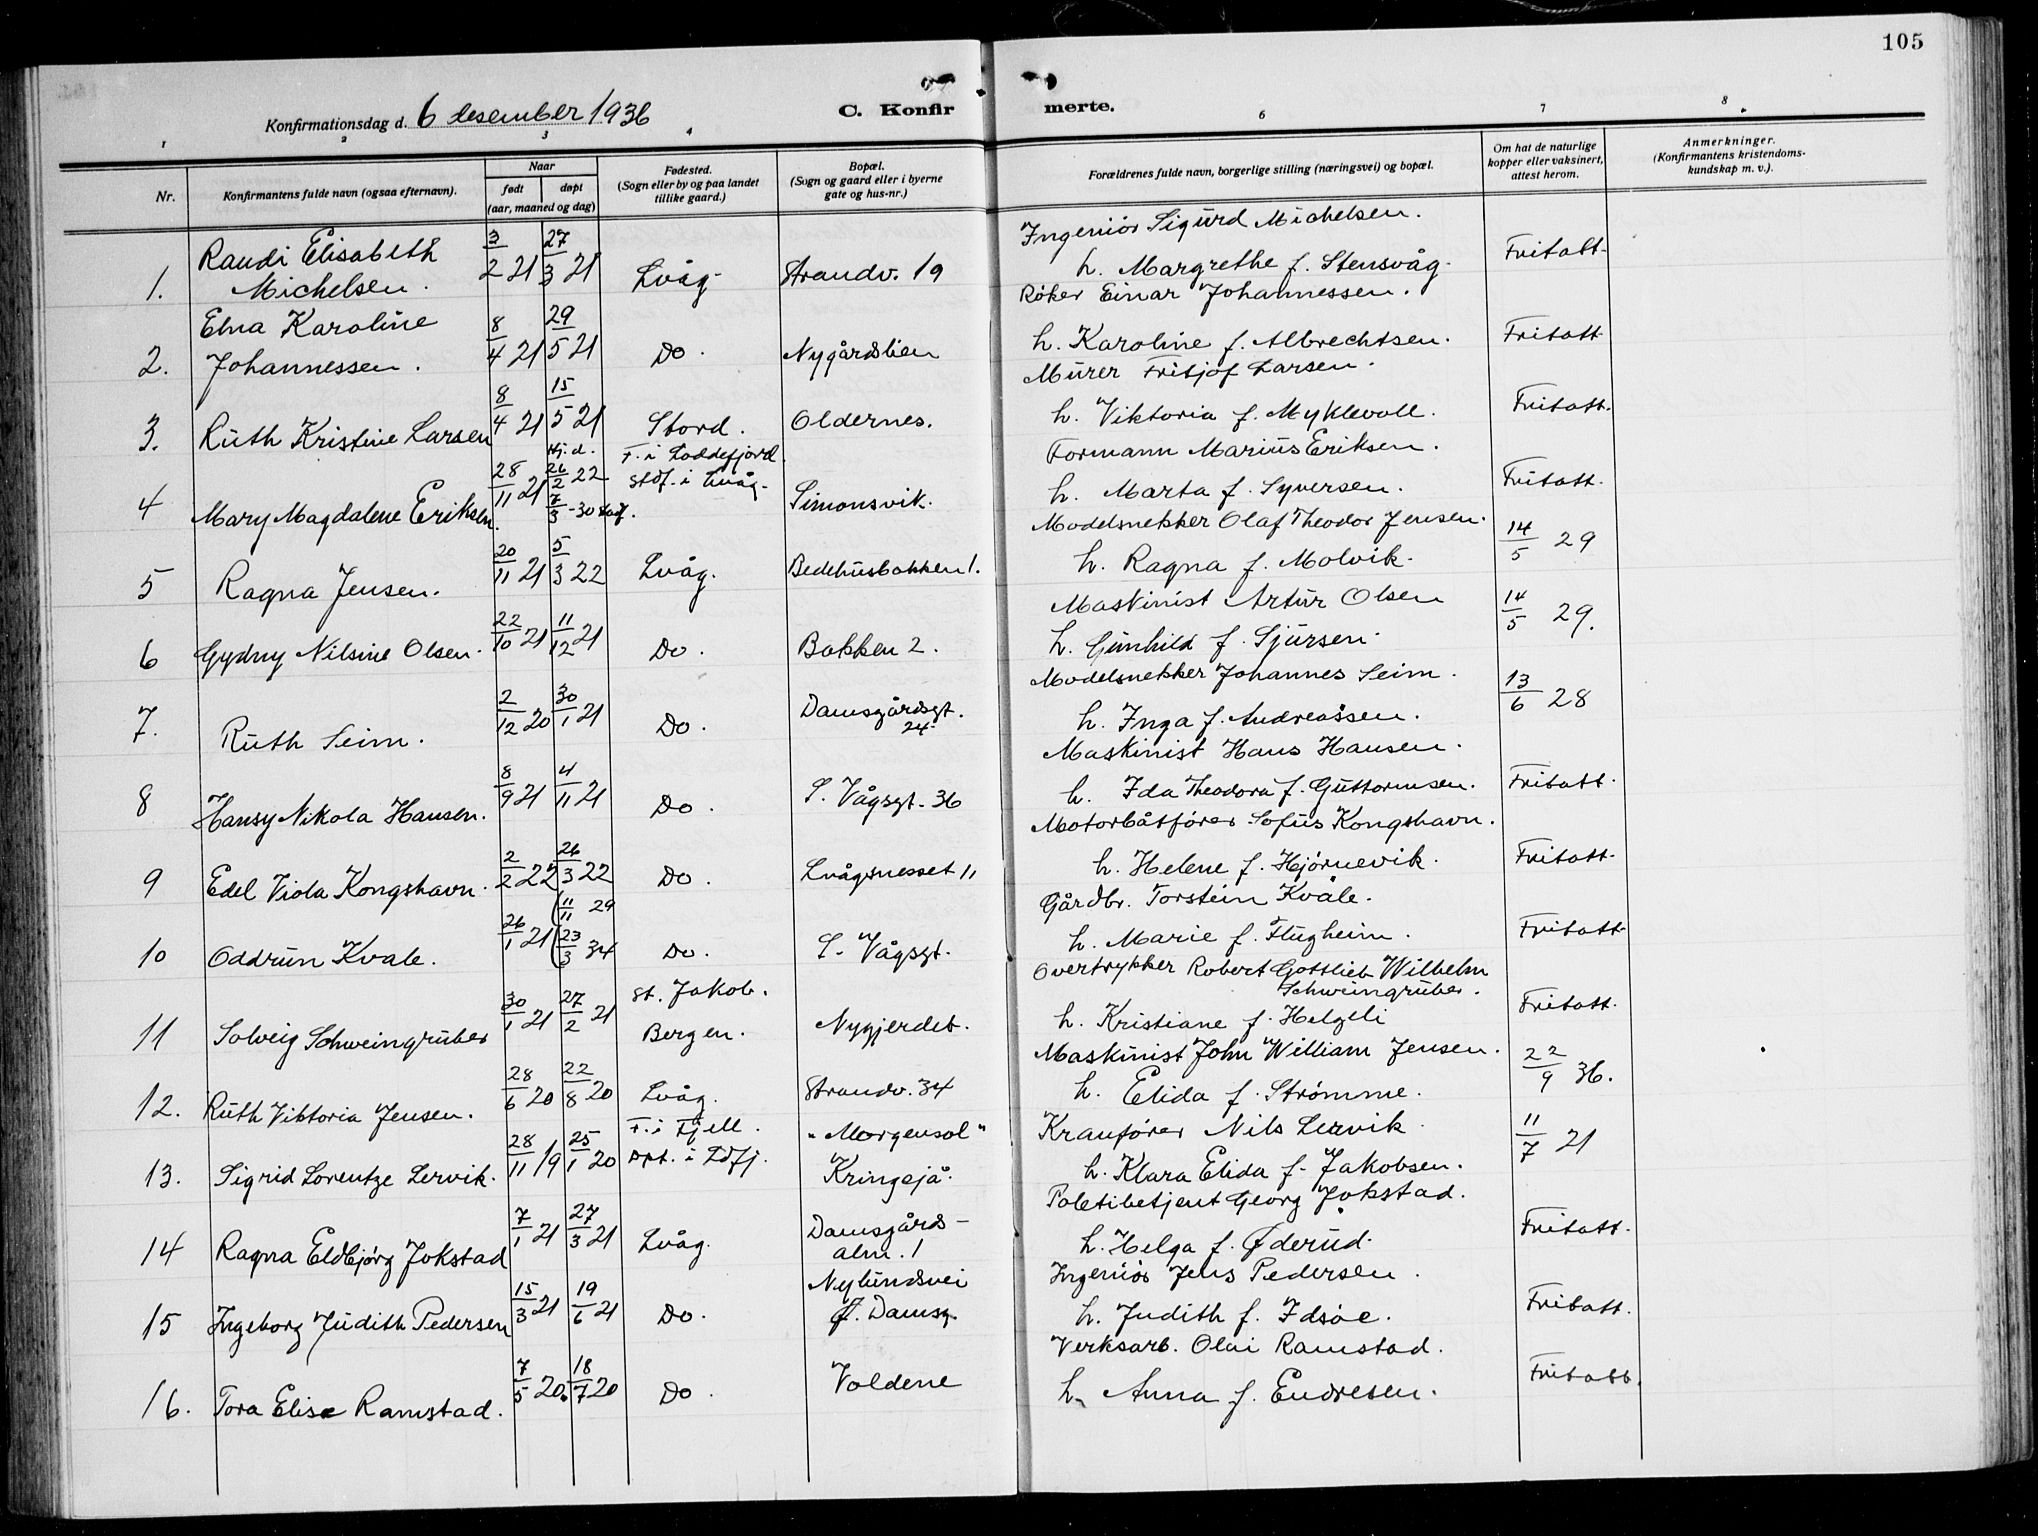 105
Konfirmationsdag d. 6 desember 1936
C. Konfir merte.
1 2 3 4 6 7 8
Nr.
Konfirmantens fulde navn (ogsaa efternavn).
Naar
født døpt
(aar, maaned og dag)
Fødested.
(Sogn eller by og paa landet
tillike gaard.)
Bopæl.
(Sogn og gaard eller i byerne
gate og hus-nr.)
Forældrenes fulde navn, borgerlige stilling (næringsvei) og bopæl.
Om hat de naturlige
kopper eller vaksinert,
attest herom.
Anmerkninger.
(Konfirmantens kristendoms-
kundskap m. v.).
Randi Elisabeth
1. Michelsen. 3/2 21 27/3 21 Lvåg Strandv. 19
Ingeniør Sigurd Michelsen.
h. Margrethe f. Stensvåg. Fritatt.
Elna Karoline
2. Johannessen. 8/4 21 29/5 21 Do. Nygårdslien
Røker Einar Johannessen.
h. Karoline f. Albrechtsen. Fritatt
3. Ruth Kristine Larsen 8/4 21 15/5 21 Stord. Oldernes.
Murer Fritjof Larsen.
h. Viktoria f. Myklevoll. Fritatt.
4 Mary Magdalene Eriksen. 28/11 21 Hj. d. 26/2 22 7/3 -30 stadf. F. i Loddefjord stdf. i Lvåg. Simonsvik.
Formann Marius Eriksen.
h. Marta f. Syversen. Fritatt.
5 Ragna Jensen. 20/11 21 5/3 22 Lvåg. Bedehusbakken 1.
Modelsnekker Olaf Theodor Jensen.
h. Ragna f. Molvik. 14/5 29
6 Gydny Nilsine Olsen. 22/10 21 11/12 21 Do. Bakken 2.
Maskinist Artur Olsen
h. Gunhild f. Sjursen. 14/5 29.
7. Ruth Seim. 2/12 20 30/1 21 Do. Damsgårdsgt. 24.
Modelsnekker Johannes Seim.
h. Inga f. Andreassen. 13/6 28
8 Hansy Nikola Hansen. 8/9 21 4/11 21 Do. S. Vågsgt. 36
Maskinist Hans Hansen.
h. Ida Theodora f. Guttormsen. Fritatt.
9 Edel Viola Kongshavn. 2/2 22 26/3 22 Do. Lvågsnesset 11
Motorbåtfører Sofus Kongshavn.
h. Helene f. Hjørnevik. Fritatt.
10 Oddrun Kvale. 26/1 21 (11/11 29 (23/3 34 Do. S. Vågsgt.
Gårdbr. Torstein Kvåle.
h. Marie f. Flugheim. Fritatt
11 Solveig Schweingruber 30/1 21 27/2 21 St. Jakob. Bergen. Nygjerdet.
Overtrykker Robert Gottlieb Wilhelm
Schweingruber.
h. Kristiane f. Helgeli Fritatt.
12. Ruth Viktoria Jensen. 28/6 20 22/8 20 Lvåg. Strandv. 34
Maskinist John William Jensen.
h. Elida f. Strømme. 22/9 36.
13. Sigrid Lorentze Lervik. 28/11 19 25/1 20 F. i Fjell. Dpt. i Ldfj. "Morgensol" Kringsjå.
Kranfører Nils Lervik.
h. Klara Elida f. Jakobsen. 11/7 21
14 Ragna Eldbjørg Jokstad 7/1 21 27/3 21 Lvåg. Damsgårds-
alm. 1
Poletibetjent Georg Jokstad.
h. Helga f. Øderud. Fritatt.
15 Ingeborg Judith Pedersen 15/3 21 19/6 21 Do. Nylundsvei
Damsg.
Ingeniør Jens Pedersen.
h. Judith f. Idsøe. Fritatt.
16. Tora Elise Ramstad. 7/5 20. 18/7 20 Do. Voldene
Verksarb. Olai Ramstad.
h. Anna f. Endresen. Fritatt.